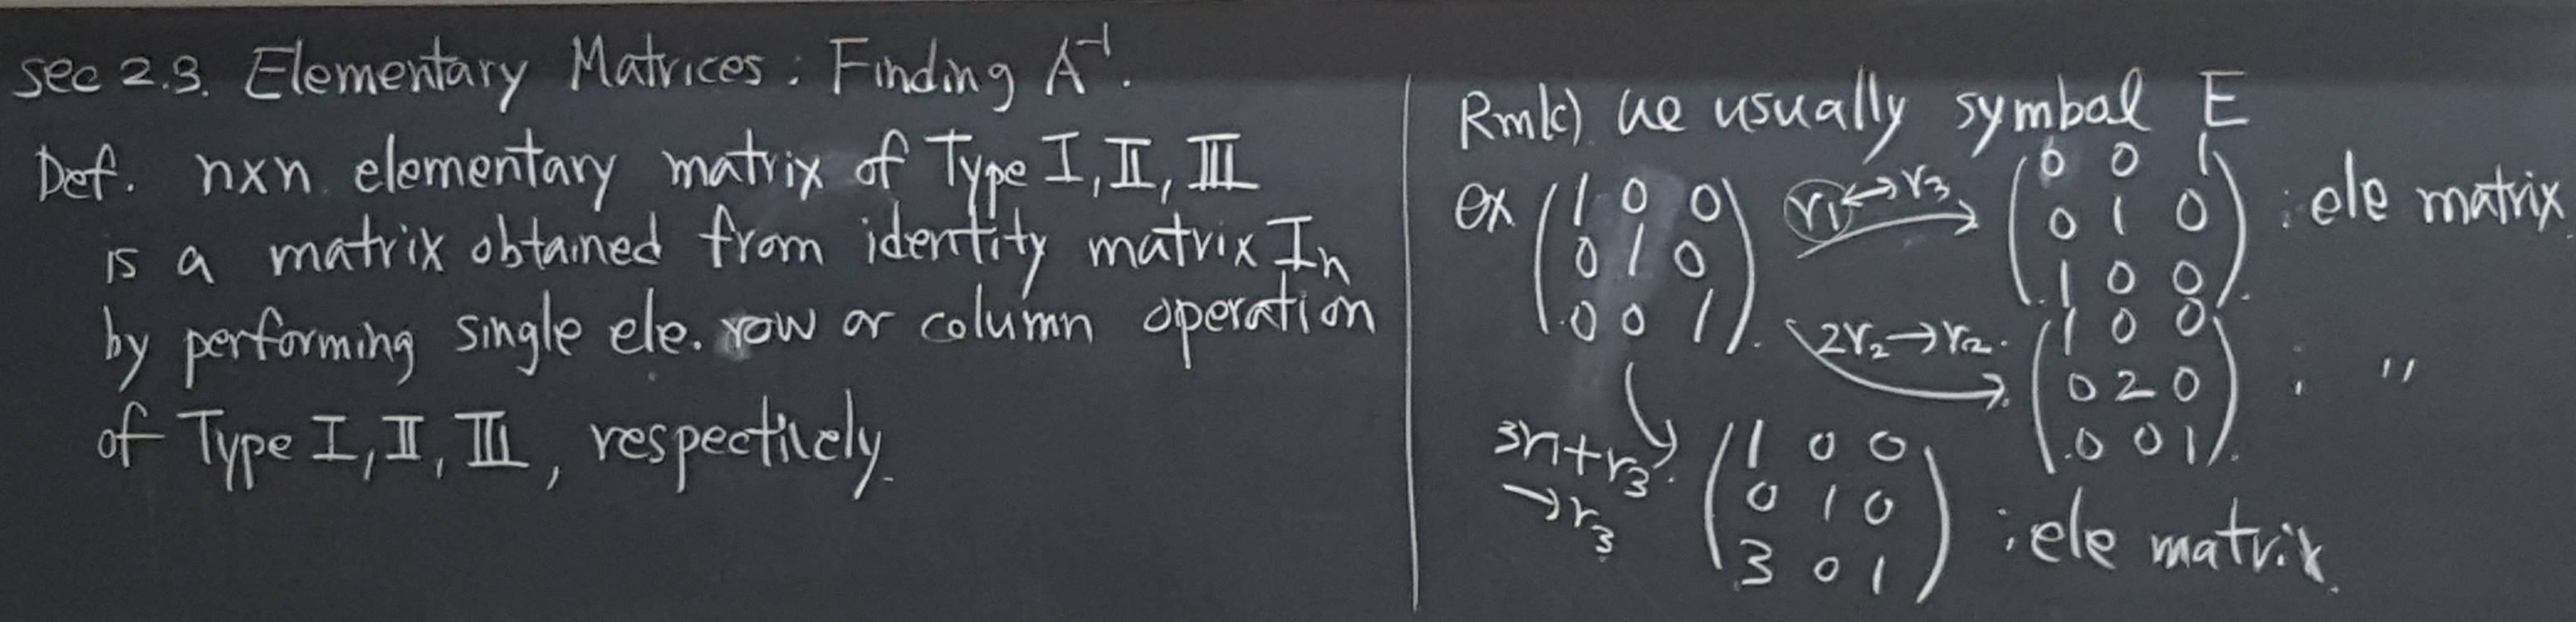 sec 2.3. Elementary Matrices : Finding A⁻¹.
Def. n×n elementary matrix of Type I, II, III
is a matrix obtained from identity matrix Iₙ
by performing single ele. row or column operation
of Type I, II, III, respectively.
Rmk) we usually symbol E
ex
(1 0 0
0 1 0
0 0 1).
r₁ ↔ r₃ →
(0 0 1
0 1 0
1 0 0). : ele matrix
2r₂ → r₂.
(1 0 0
0 2 0
0 0 1). : "
3r₁ + r₃.
→ r₃
(1 0 0
0 1 0
3 0 1) : ele matrix.